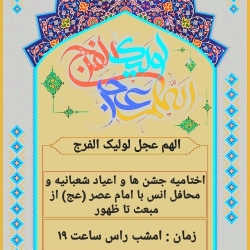 اللهم عجل لولیک الفرج
الهم عجل لولیک الفرج
اختامیه جشن ها و اعیاد شعبانیه و
محافل انس با امام عصر (عج) از
مبعث تا ظهور
زمان : امشب راس ساعت ۱۹